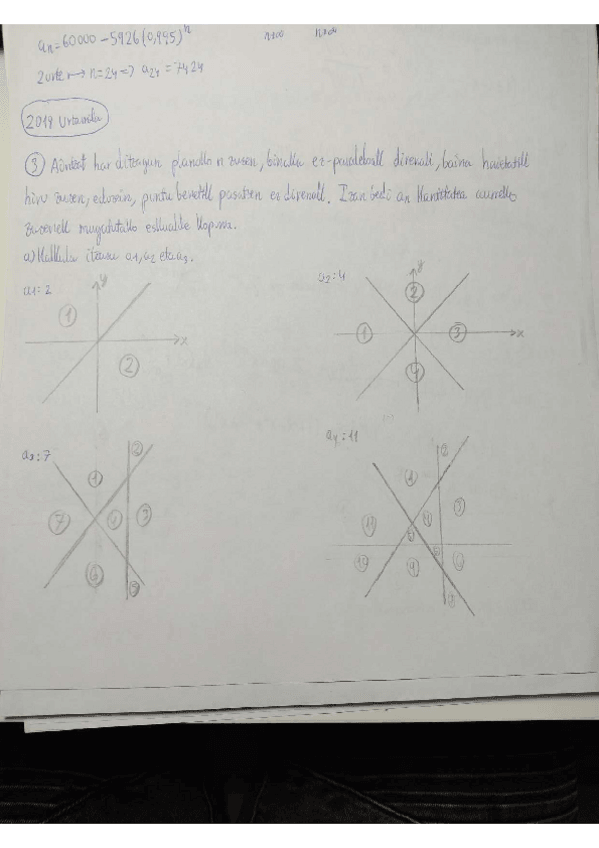 an=60000-5926(0,995)^n n→∞ n→∞
2 urte → n=24 ⇒ a24 = 7424
2019 Urtarrila
③ Aintzat har ditzagun planoko n zuzen, binaka ez-paraleloak direnak, baina haietatik
hiru zuzen, edozein, puntu beretik pasatzen ez direnak. Izan bedi an kantitatea aurreko
zuzenek mugatutako eskualde kopurua.
a) Kalkula itzazu a1, a2 eta a3.
a1=2 y a2=4 y
1 2
x 1 3 x
2 4
a3=7 a4=11
2 2
1 1
7 4 3 11 4 3
5
10 9 6
6
5 8